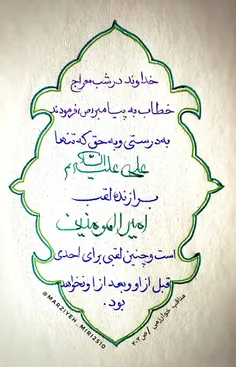 خداوند در شب معراج
خطاب به پیامبر(ص) فرمودند
به درستی و به حق که تنها
علی علیه السلام
برازنده لقب
امیرالمومنین
است و چنین لقبی برای احدی
قبل از او و بعد از او نخواهد
بود.
مناقب خوارزمی /ص ۳۰۳
@MARZIYEH_MIRI2510